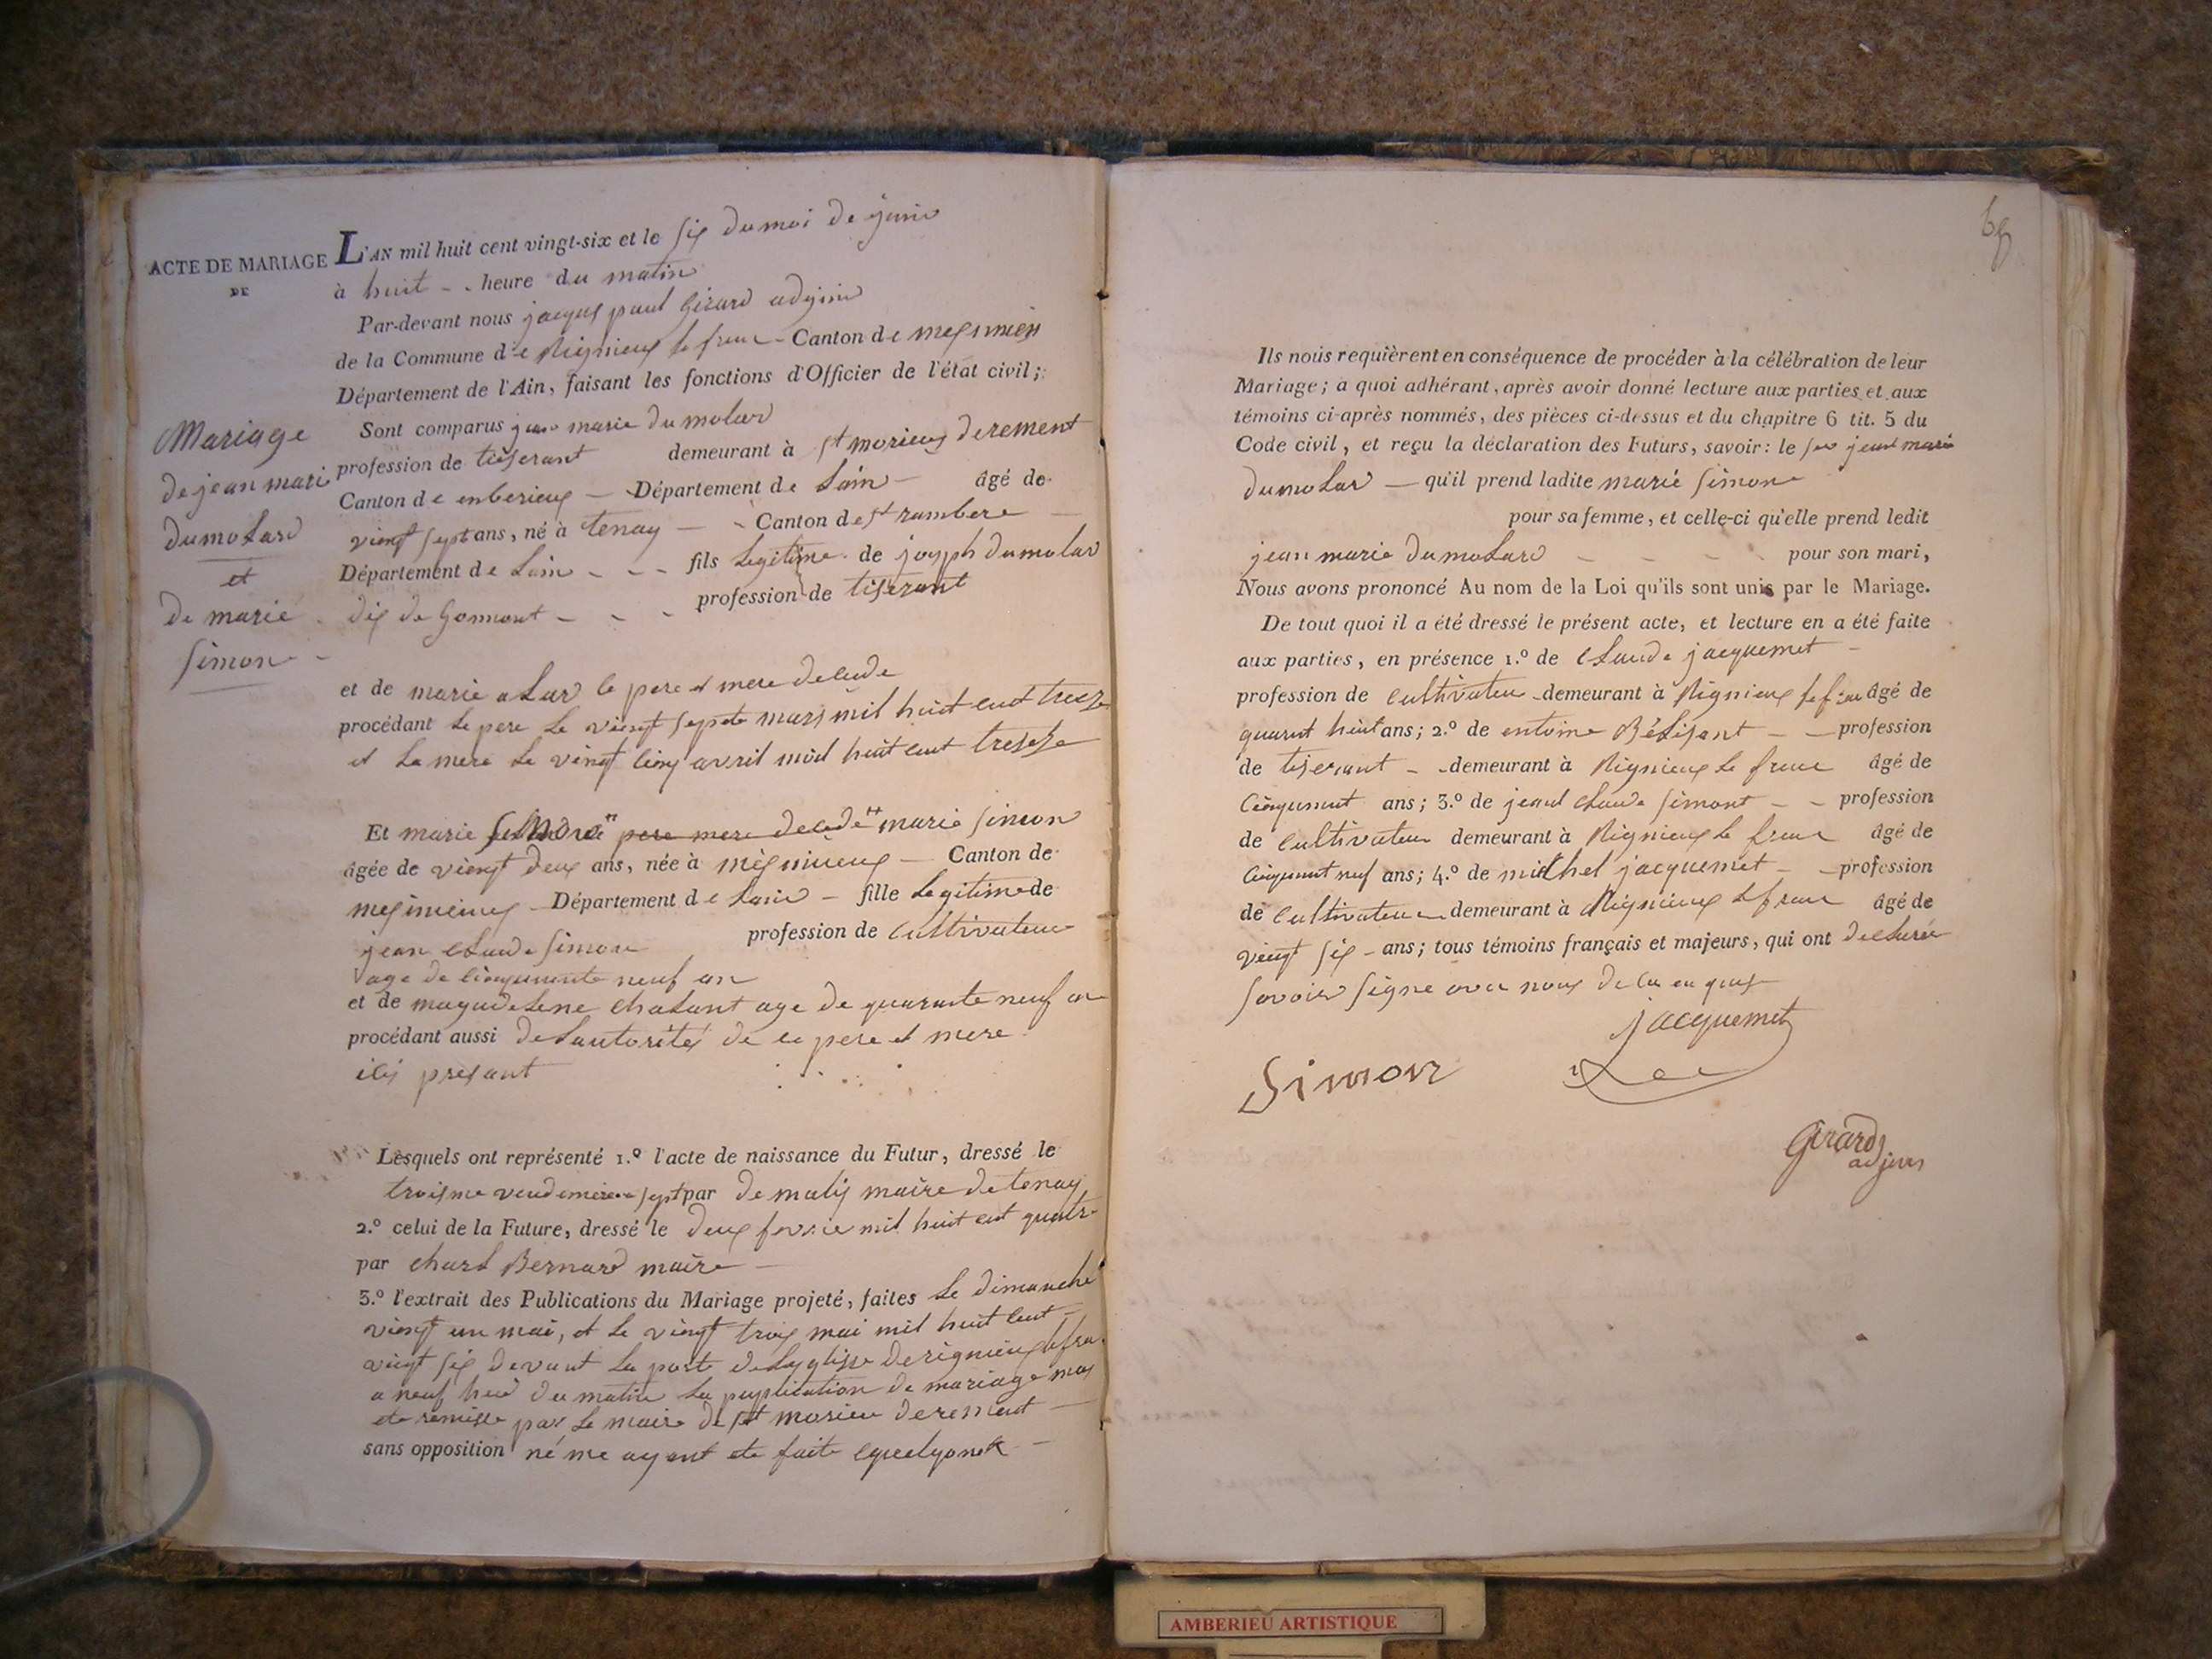 ACTE DE MARIAGE
DE
Mariage
de jean mari
dumolard
et
de marie
simon
L'AN mil huit cent vingt-six et le six du moi de juin
à huit - - heure du matin
Par-devant nous jacque paul Girard adjoin
de la Commune de Rignieux le franc - Canton de meximieu
Département de l'Ain, faisant les fonctions d'Officier de l'état civil;
Sont comparus jean marie dumolard
profession de tiserant demeurant à st morieux derement
Canton de enberieux - Département de Lain - âgé de
vingt sept ans, né à tenay - - Canton de st rambere
Département de Lain - - - fils Legitime de joseph dumolar
dix de Gonnout - - - profession de tiserant
et de marie alard le pere et mere decede
procédant le pere Le vingt septe mars mil huit cent treise
et La mere Le vingt cinq avril mil huit cent tresese
Et marie pere mere decede marie simon
âgée de vingt deux ans, née à meximieux - Canton de
meximieux - Département de Lain - fille Legitime de
jean claude simon profession de cultivateur
age de cinquante neuf an
et de magadelene chalant age de quarante neuf an
procédant aussi de Lautorités de ce pere et mere
isi presant
Lesquels ont représenté 1.º l'acte de naissance du Futur, dressé le
troisme vendemiere sept par de matis maire de tenay
2.º celui de la Future, dressé le deux fevrie mil huit cent quatr
par charl Bernard maire
3.º l'extrait des Publications du Mariage projeté, faites Le dimanche
vingt un mai, et Le vingt trois mai mil huit cent -
vingt six devant La porte de Leglisse de rignieux le fra
a neuf heur du matin La puplication de mariage mas
ete remisse par Le maire de st morieu derement -
sans opposition né me ayant ete faite
69
Ils nous requièrent en conséquence de procéder à la célébration de leur
Mariage; à quoi adhérant, après avoir donné lecture aux parties et aux
témoins ci-après nommés, des pièces ci-dessus et du chapitre 6 tit. 5 du
Code civil, et reçu la déclaration des Futurs, savoir: le jean marie
dumolard - qu'il prend ladite marié simon
pour sa femme, et celle-ci qu'elle prend ledit
jean marie dumolard - - - - pour son mari,
Nous avons prononcé Au nom de la Loi qu'ils sont unis par le Mariage.
De tout quoi il a été dressé le présent acte, et lecture en a été faite
aux parties, en présence 1.º de claude jacquemet -
profession de cultivateur demeurant à Rignieux le franc âgé de
quarant huit ans; 2.º de entoine Bélisant - - profession
de tiserant - demeurant à Rignieux le franc âgé de
cinquant ans; 3.º de jeanl claude simont - - profession
de cultivateur demeurant à Rignieux le franc âgé de
cinquant neuf ans; 4.º de michel jacquemet - - profession
de cultivateur demeurant à Rignieux le franc âgé de
vingt six - ans; tous témoins français et majeurs, qui ont declarée
savoir signe avec nous
jacquemet
Simon
Girard
adjoin
AMBERIEU ARTISTIQUE